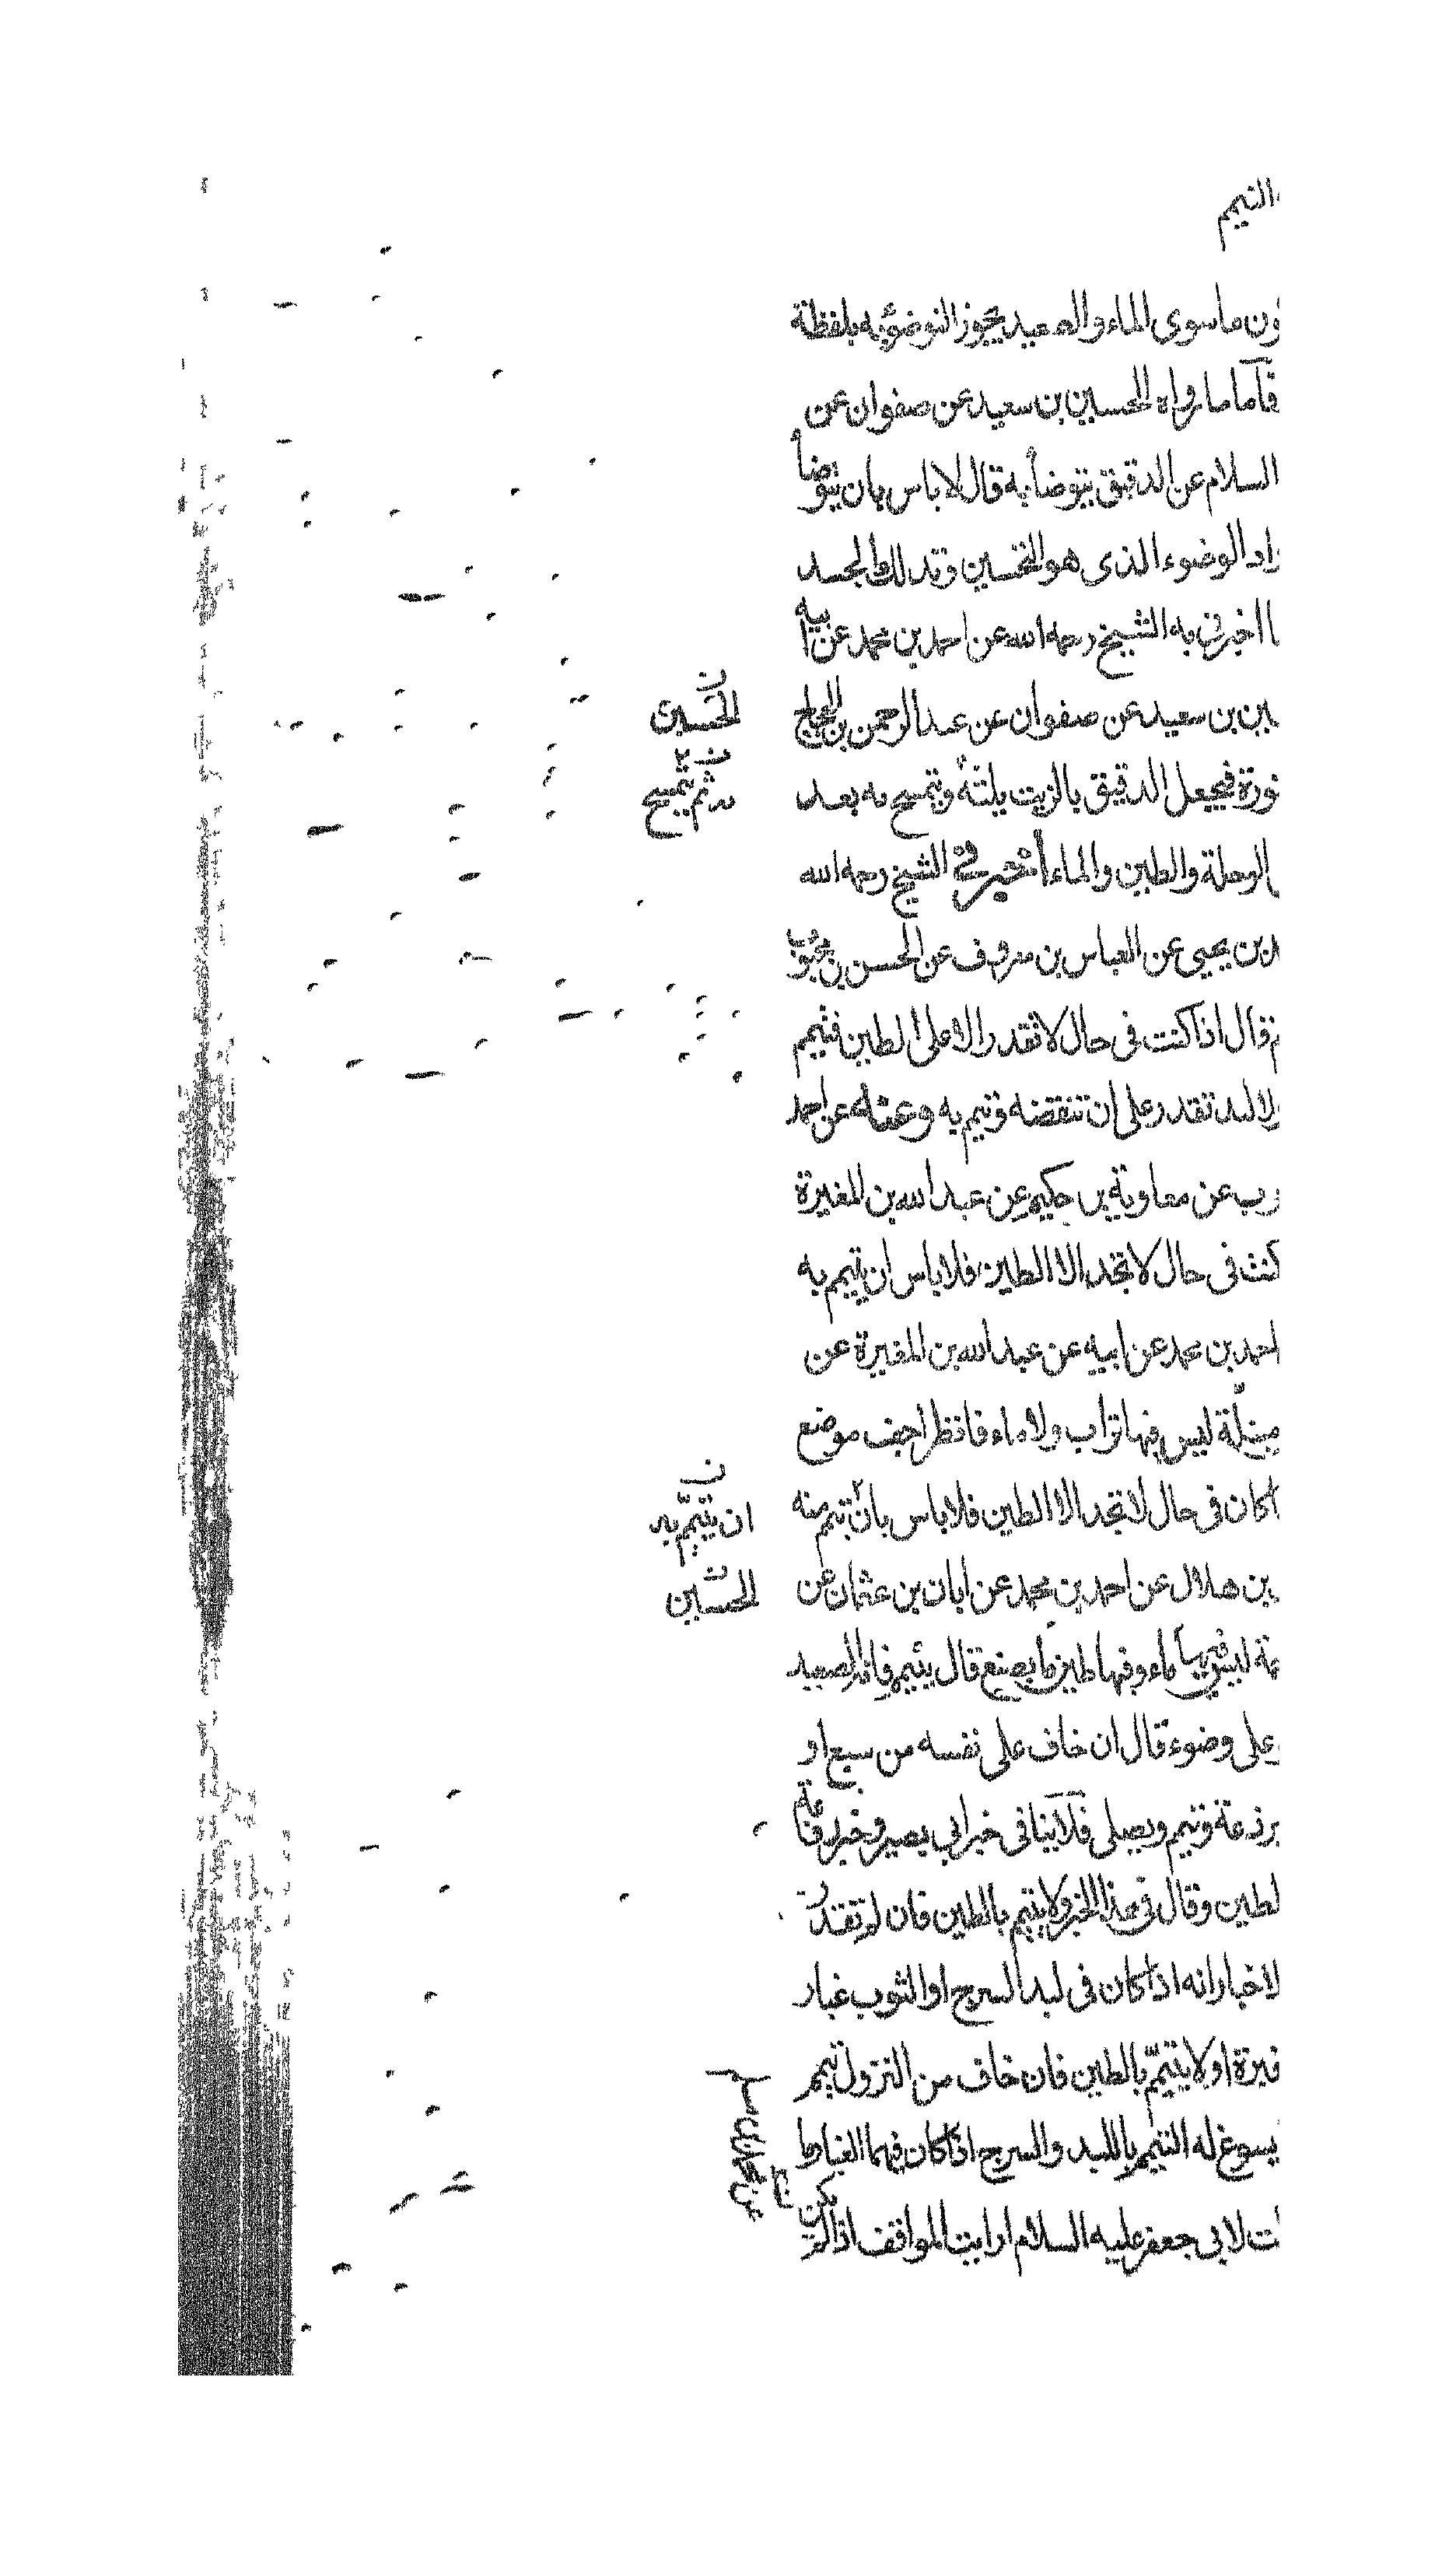 التيمم
ون ماسوى الماء والصعيد يجوز التوضؤ به بلفظة
فاما ما رواه الحسين بن سعيد عن صفوان عن
السلام عن الدقيق يتوضأ به قال لا باس بان يتوضأ
راد الوضوء الذى هو التحسين وتدلك الجسد
ا اخبرنى به الشيخ رحمه الله عن احمد بن محمد عن ابيه
ين بن سعيد عن صفوان عن عبد الرحمن بن الحجاج
نورة فيجعل الدقيق بالزيت يلته وتمسح به بعد
الوحلة والطين والماء أخبرنى الشيخ رحمه الله
بن يحيى عن العباس بن معروف عن الحسن بن محبوب
قال اذا كنت فى حال لا تقدر الا على الطين فتيمم
لا لبد تقدر على ان تنفضه وتيمم به وعنه عن احمد
وب عن معاوية بن حكيم عن عبد الله بن المغيرة
كنت فى حال لا تجد الا الطين فلا باس ان تيمم به
احمد بن محمد عن ابيه عن عبد الله بن المغيرة عن
مبتلّة ليس فيها تراب ولا ماء فانظر اجف موضع
كان فى حال لا تجد الا الطين فلا باس بان تيمم منه
بن هلال عن احمد بن محمد عن ابان بن عثمان عن
ة ليس فيها ماء وفيها طين ما يصنع قال يتيمم فانه الصعيد
على وضوء قال ان خاف على نفسه من سبع او
برذعة وتيمم ويصلى فلا ينافى خبر ابى بصير وخبر رفاعة
لطين وقال فى هذا الخبر ولا يتيمم بالطين فان لم تقدر
لاخبار انه اذا كان فى لبد السرج او الثوب غبار
اولا يتيمّم بالطين فان خاف من النزول تيمم
يسوغ له التيمم باللبد والسرج اذا كان فيهما الغبار
ت لابى جعفر عليه السلام ارايت المواقف اذا لم يكن
الحسين
ثم يتمسح
ان يتيمّم به
الحسين